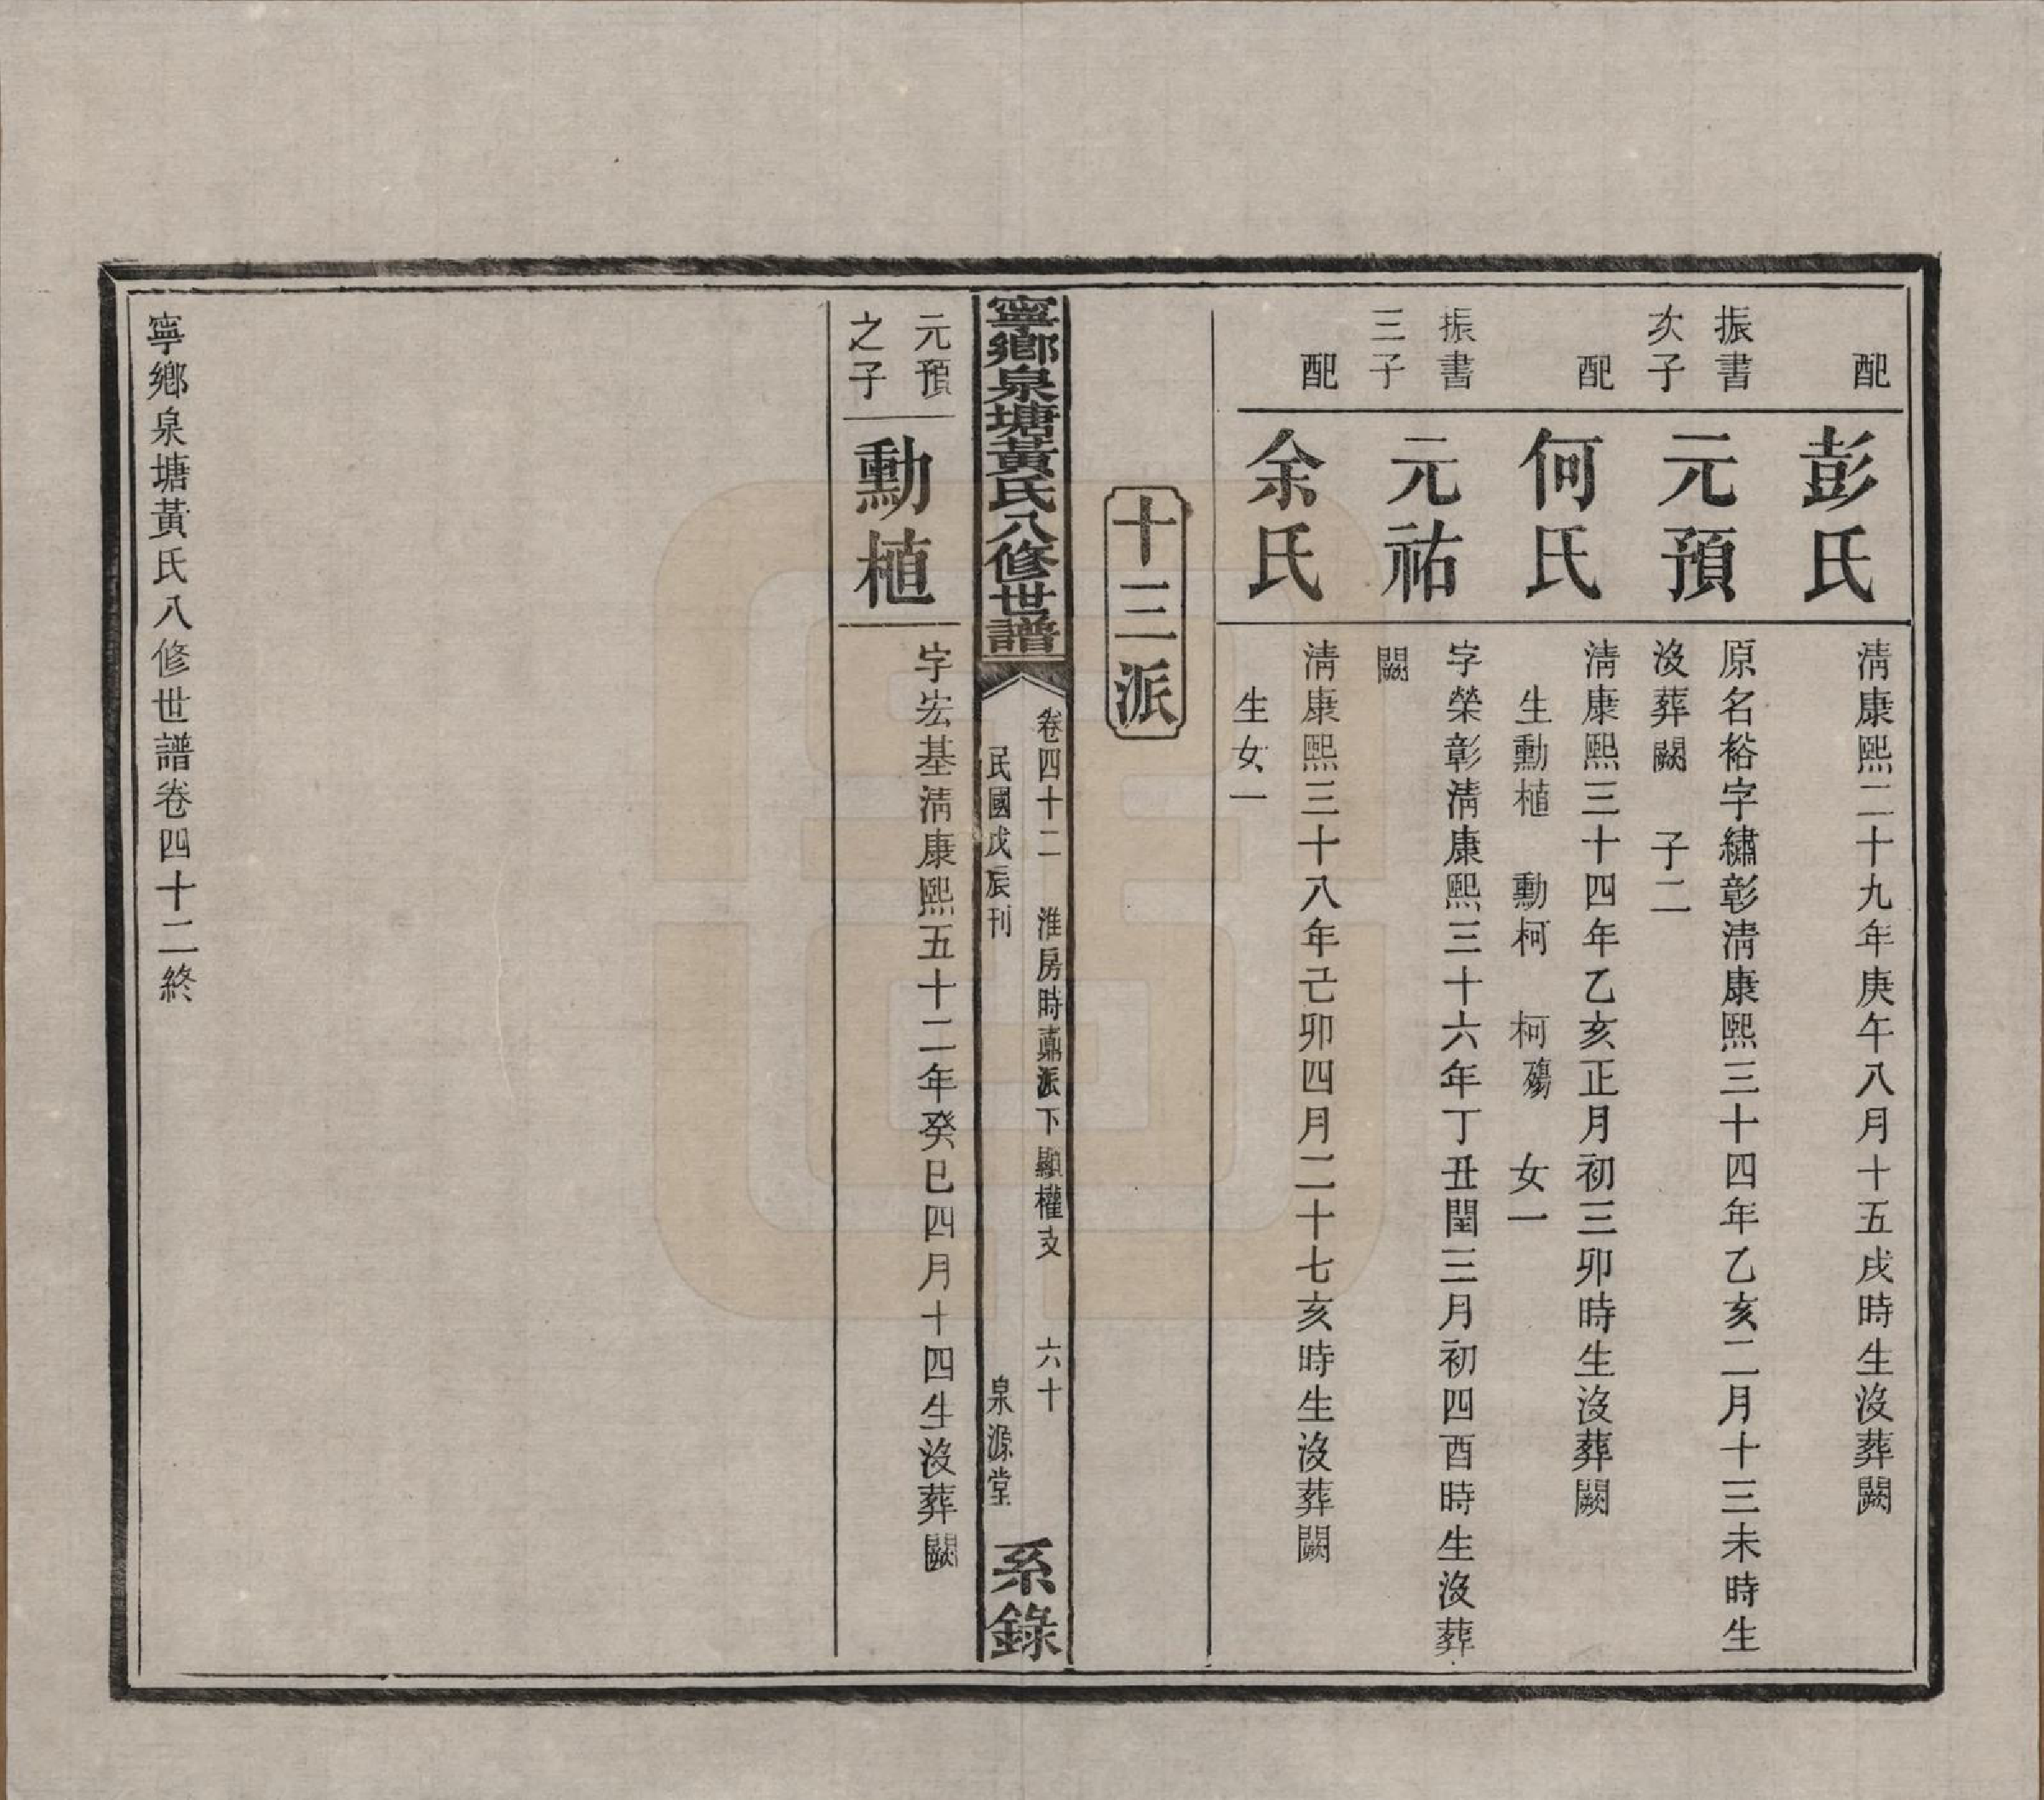 配
彭氏
清康熙二十九年庚午八月十五戌時生沒葬闕
振書
次子
元預
原名裕字繡彰清康熙三十四年乙亥二月十三未時生
沒葬闕　子二
配
何氏
清康熙三十四年乙亥正月初三卯時生沒葬闕
生勳植　勳柯　柯殤　女一
振書
三子
元祐
字榮彰清康熙三十六年丁丑閏三月初四酉時生沒葬
闕
配
余氏
清康熙三十八年己卯四月二十七亥時生沒葬闕
生女一
十三派
寧鄉泉塘黃氏八修世譜
卷四十二　淮房時鼒派下顯權支　六十
民國戊辰刊　泉源堂
系錄
元預
之子
勳植
字宏基清康熙五十二年癸巳四月十四生沒葬闕
寧鄉泉塘黃氏八修世譜卷四十二終